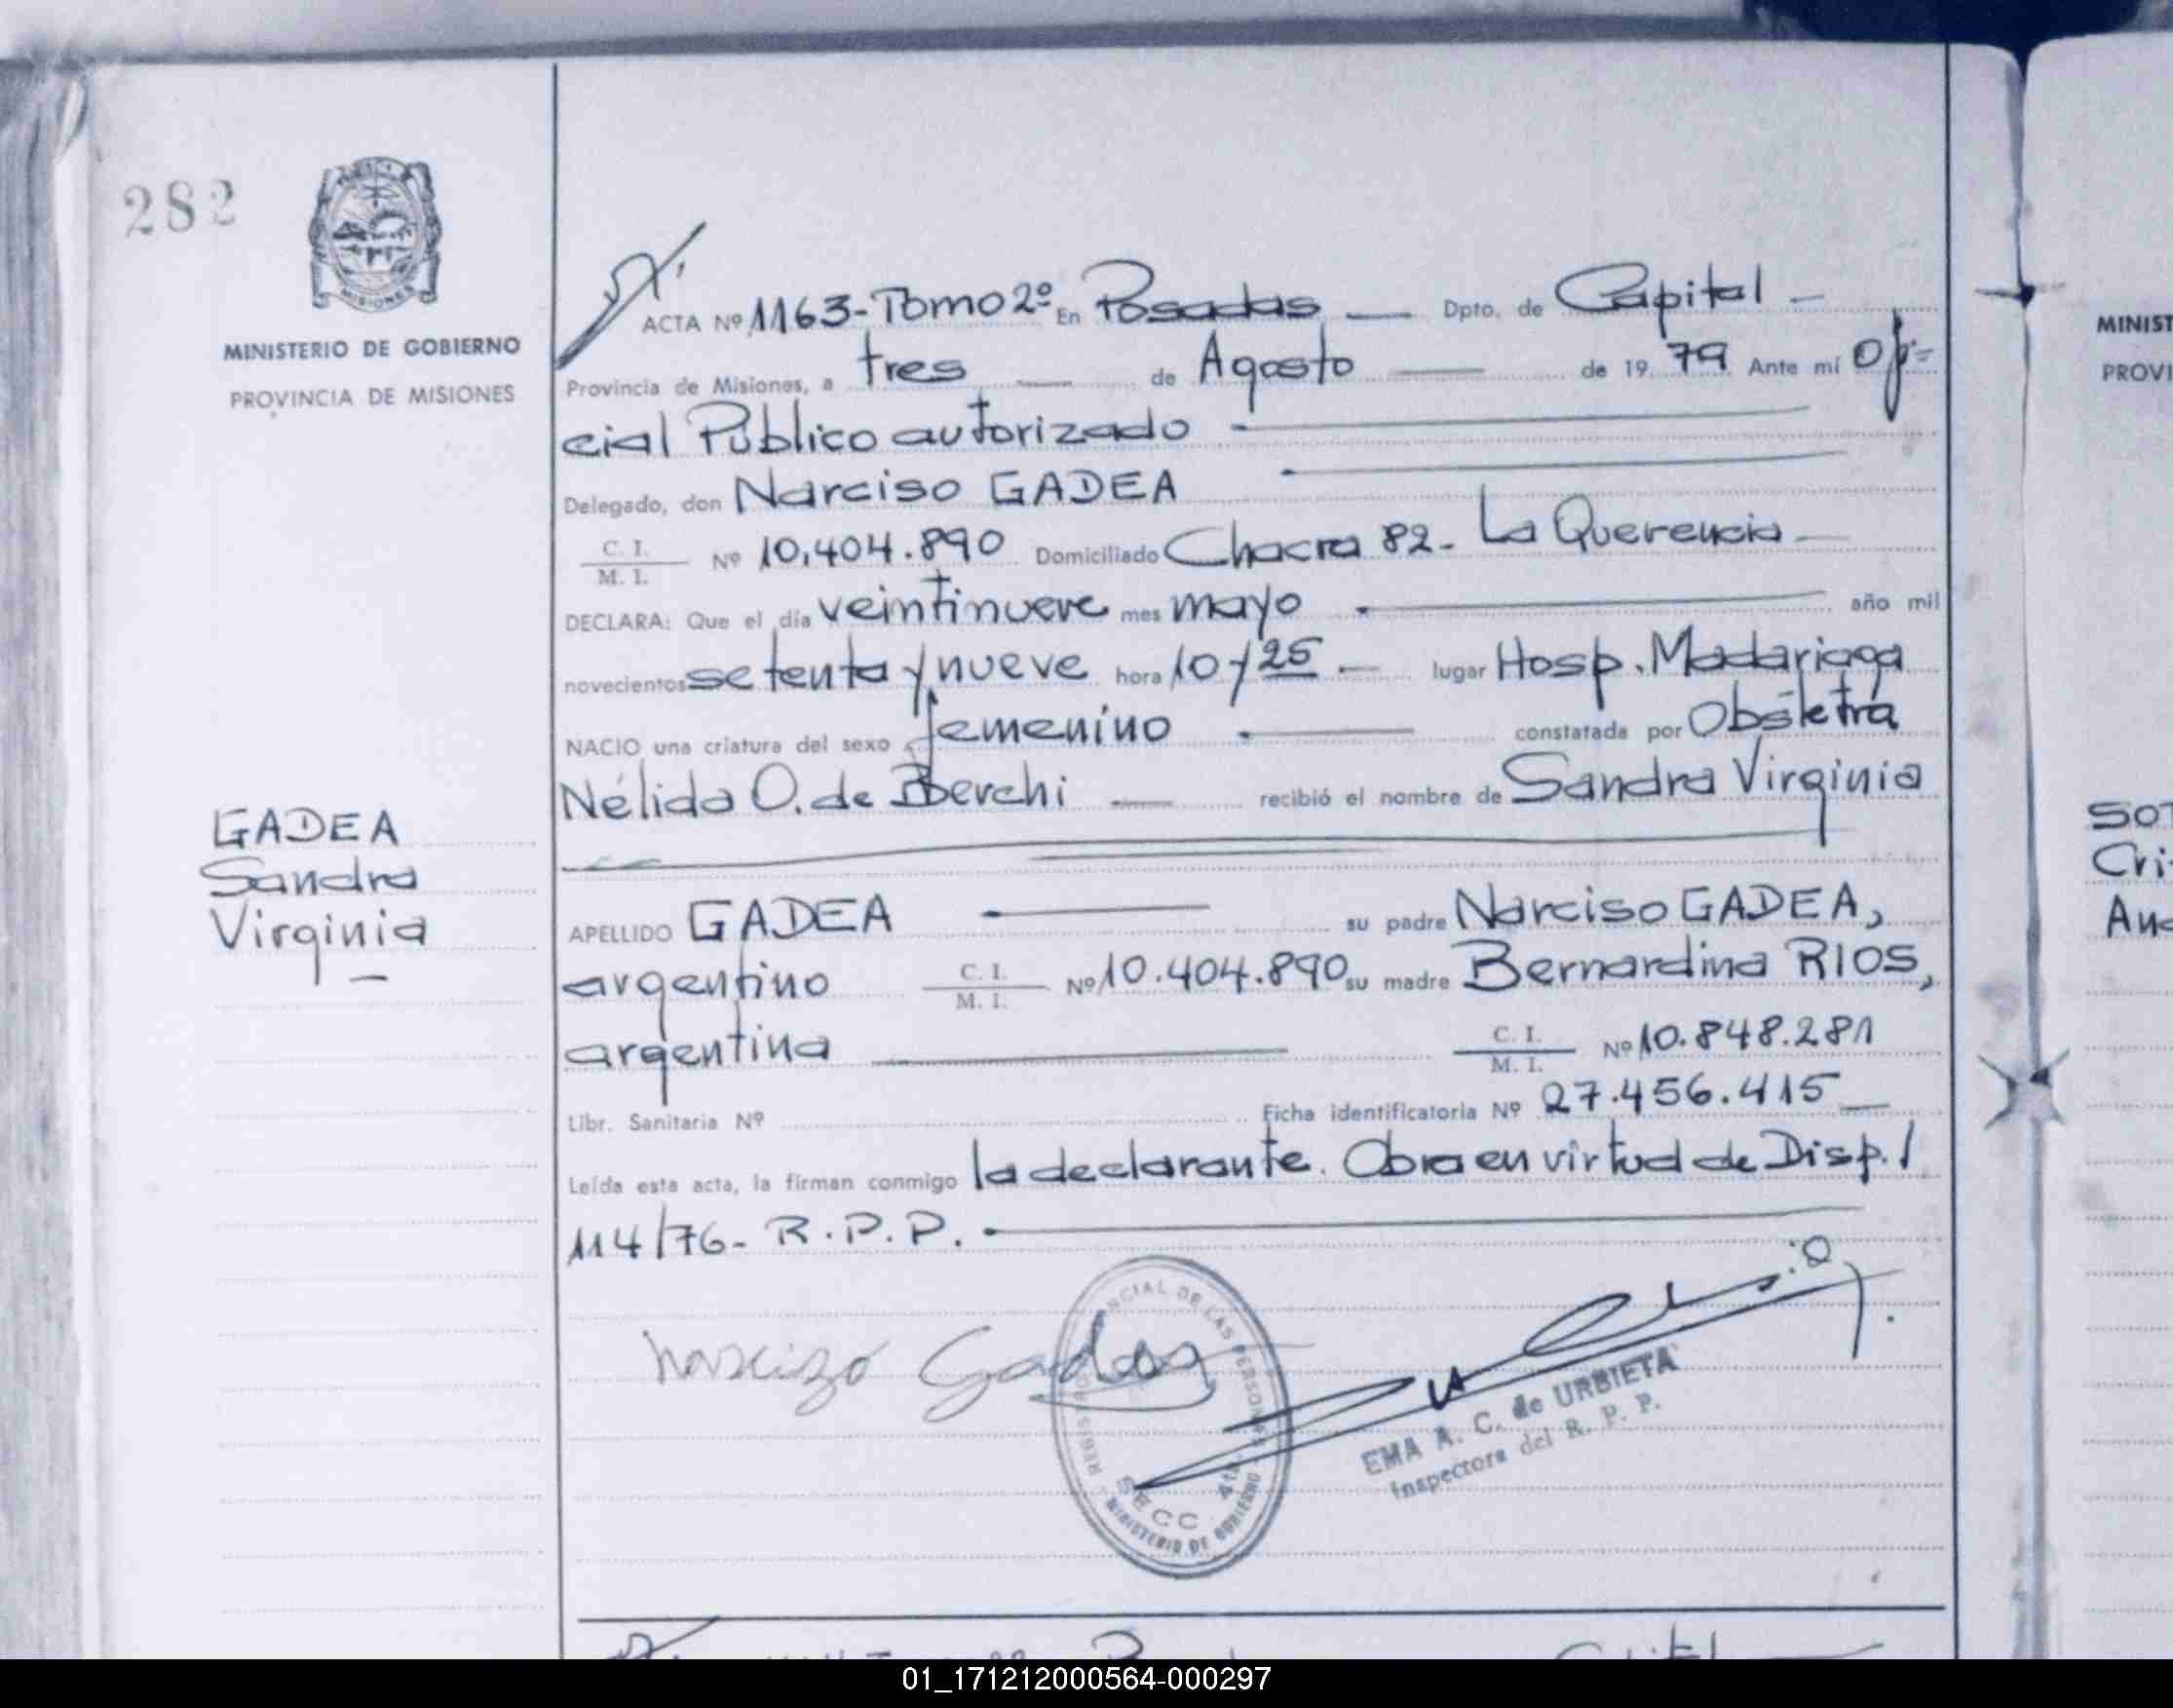 282
MISIONES
MINISTERIO DE GOBIERNO
PROVINCIA DE MISIONES
GADEA
Sandra
Virginia
ACTA Nº 1163-Tomo 2º En Posadas — Dpto. de Capital —
Provincia de Misiones, a tres — de Agosto — de 19 79 Ante mí Ofi=
cial Público autorizado
Delegado, don Narciso GADEA
C. I. / M. I. Nº 10,404.890 Domiciliado Chacra 82- La Querencia —
DECLARA: Que el día veintinueve mes mayo año mil
novecientos setenta y nueve hora 10 y 25 — lugar Hosp. Madariaga
NACIO una criatura del sexo femenino constatada por Obstetra
Nélida O. de Berchi — recibió el nombre de Sandra Virginia
APELLIDO GADEA su padre Narciso GADEA,
argentino C. I. / M. I. Nº 10.404.890 su madre Bernardina RIOS,
argentina C. I. / M. I. Nº 10.848.281
Libr. Sanitaria Nº Ficha identificatoria Nº 27.456.415 —
Leída esta acta, la firman conmigo la declarante. Obra en virtud de Disp. /
114/76- R.P.P.
Narcizo Gadea
REGISTRO PROVINCIAL DE LAS PERSONAS
SECC 4ta.
MINISTERIO DE GOBIERNO
EMA A. C. de URBIETA
Inspectora del R. P. P.
MINIST
PROVI
SOT
Cri-
And
01_171212000564-000297